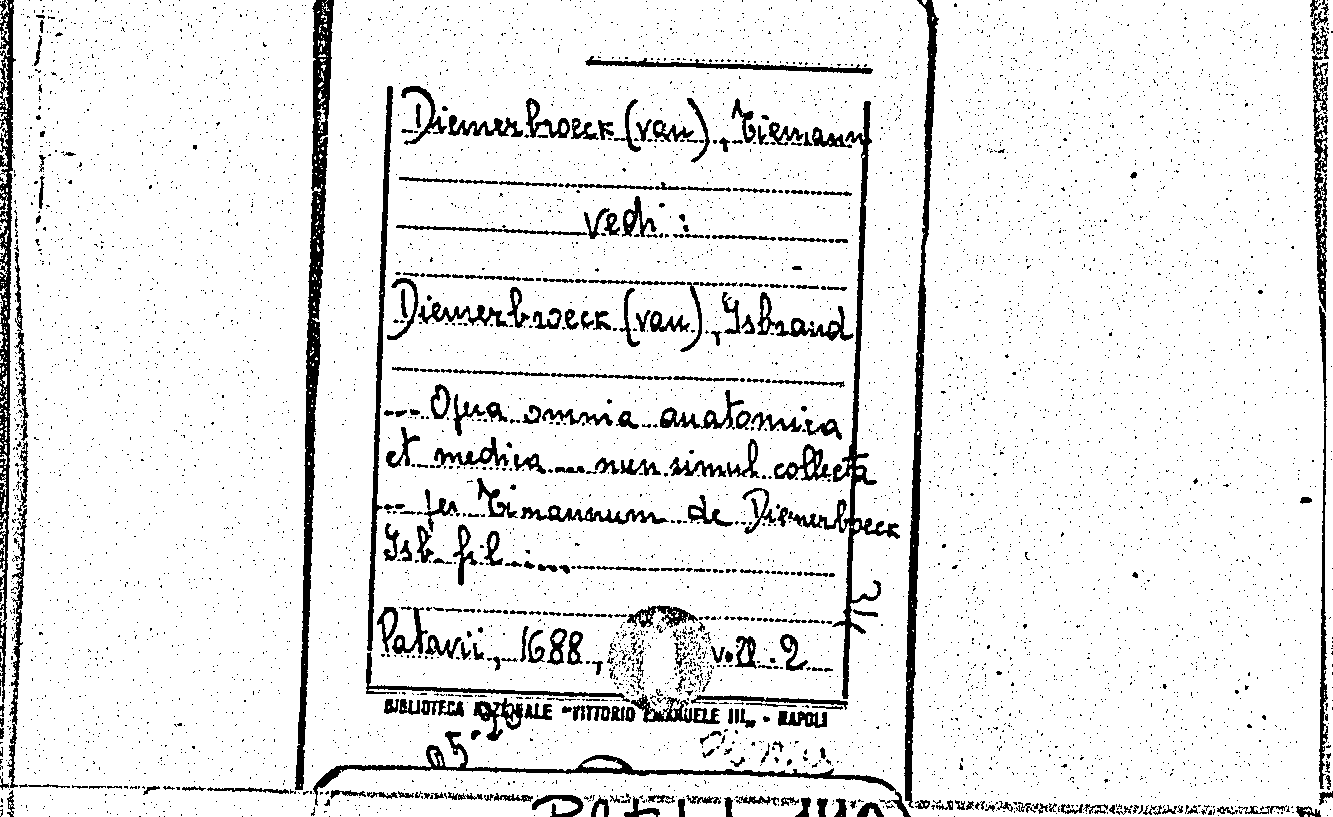 Diemerbroeck (van), Tiemann
vedi :
Diemerbroeck (van), Ysbrand
--- Opera omnia anatomica
et medica .... nun simul collecta
--- per Timannum de Diemerbroeck
Ysb. fil. ....
Patavii, 1688, voll. 2
BIBLIOTECA NAZIONALE "VITTORIO EMANUELE III" - NAPOLI